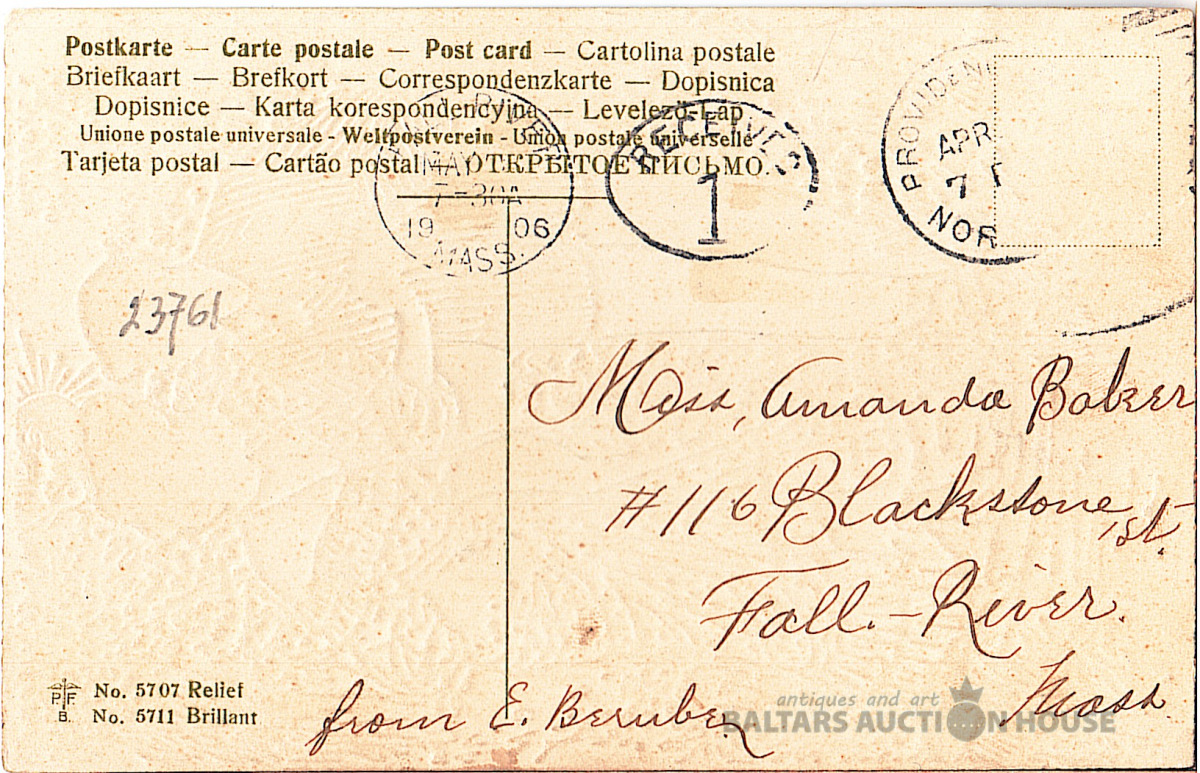 Postkarte — Carte postale — Post card — Cartolina postale
Briefkaart — Brefkort — Correspondenzkarte — Dopisnica
Dopisnice — Karta korespondencyjna — Levelező-Lap
Unione postale universale - Weltpostverein - Union postale universelle
Tarjeta postal — Cartão postal — ОТКРЫТОЕ ПИСЬМО.
MAY
7-30A
19 06
MASS.
RECEIVED
1
PROVIDEN
APR
7
NOR
23761
Miss, Amanda Baker
#116 Blackstone, st.
Fall.-River.
Mass
from E. Berube
P.F.
B.
No. 5707 Relief
No. 5711 Brillant
antiques and art
BALTARS AUCTION HOUSE